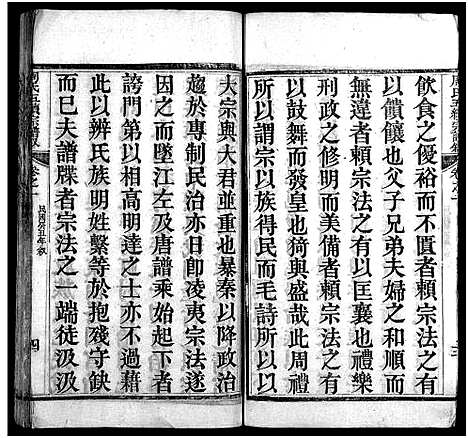 飲食之優裕而丁口遂者賴宗法有
以饋饟也父子兄弟夫婦之和順而
無違者賴宗法有以匡襄也禮樂
刑政之修明而美備者賴宗法有
以鼓舞而發皇也猗與盛哉此周禮
所以謂以族得民而毛詩所以謂以
大宗與大君並重也暴秦以降政治
趨於專制民治亦日卽凌夷宗法遂
因之而墜江左及唐譜乘始起下者
誇門第以相高明達之士亦不過藉
此以辨氏族明姓繫等於抱殘守缺
而已夫譜牒者宗法之一端徒汲汲
卷之一
民國癸丑年叙
四